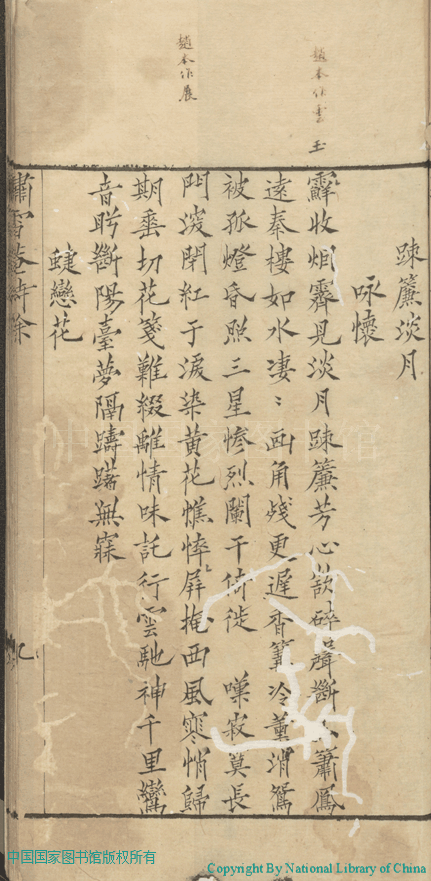 趙本作雲
玉
趙本作展
踈簾淡月
咏懷
霏收烟霽見淡月踈簾芳心欲碎聲斷簫鳳
遠秦樓如水凄〻畫角殘更遲香篝冷薰消鴛
被孤燈昏照三星慘烈闌干倚徙 嘆寂莫長
門深閉紅于淚染黄花憔悴屏掩西風寒悄歸
期垂切花箋難綴離情味託行雲馳神千里鸞
音盻斷陽臺夢隔躊躇無寐
蜨戀花
嘯雪菴詩餘
中国国家图书馆版权所有
Copyright By National Library of China